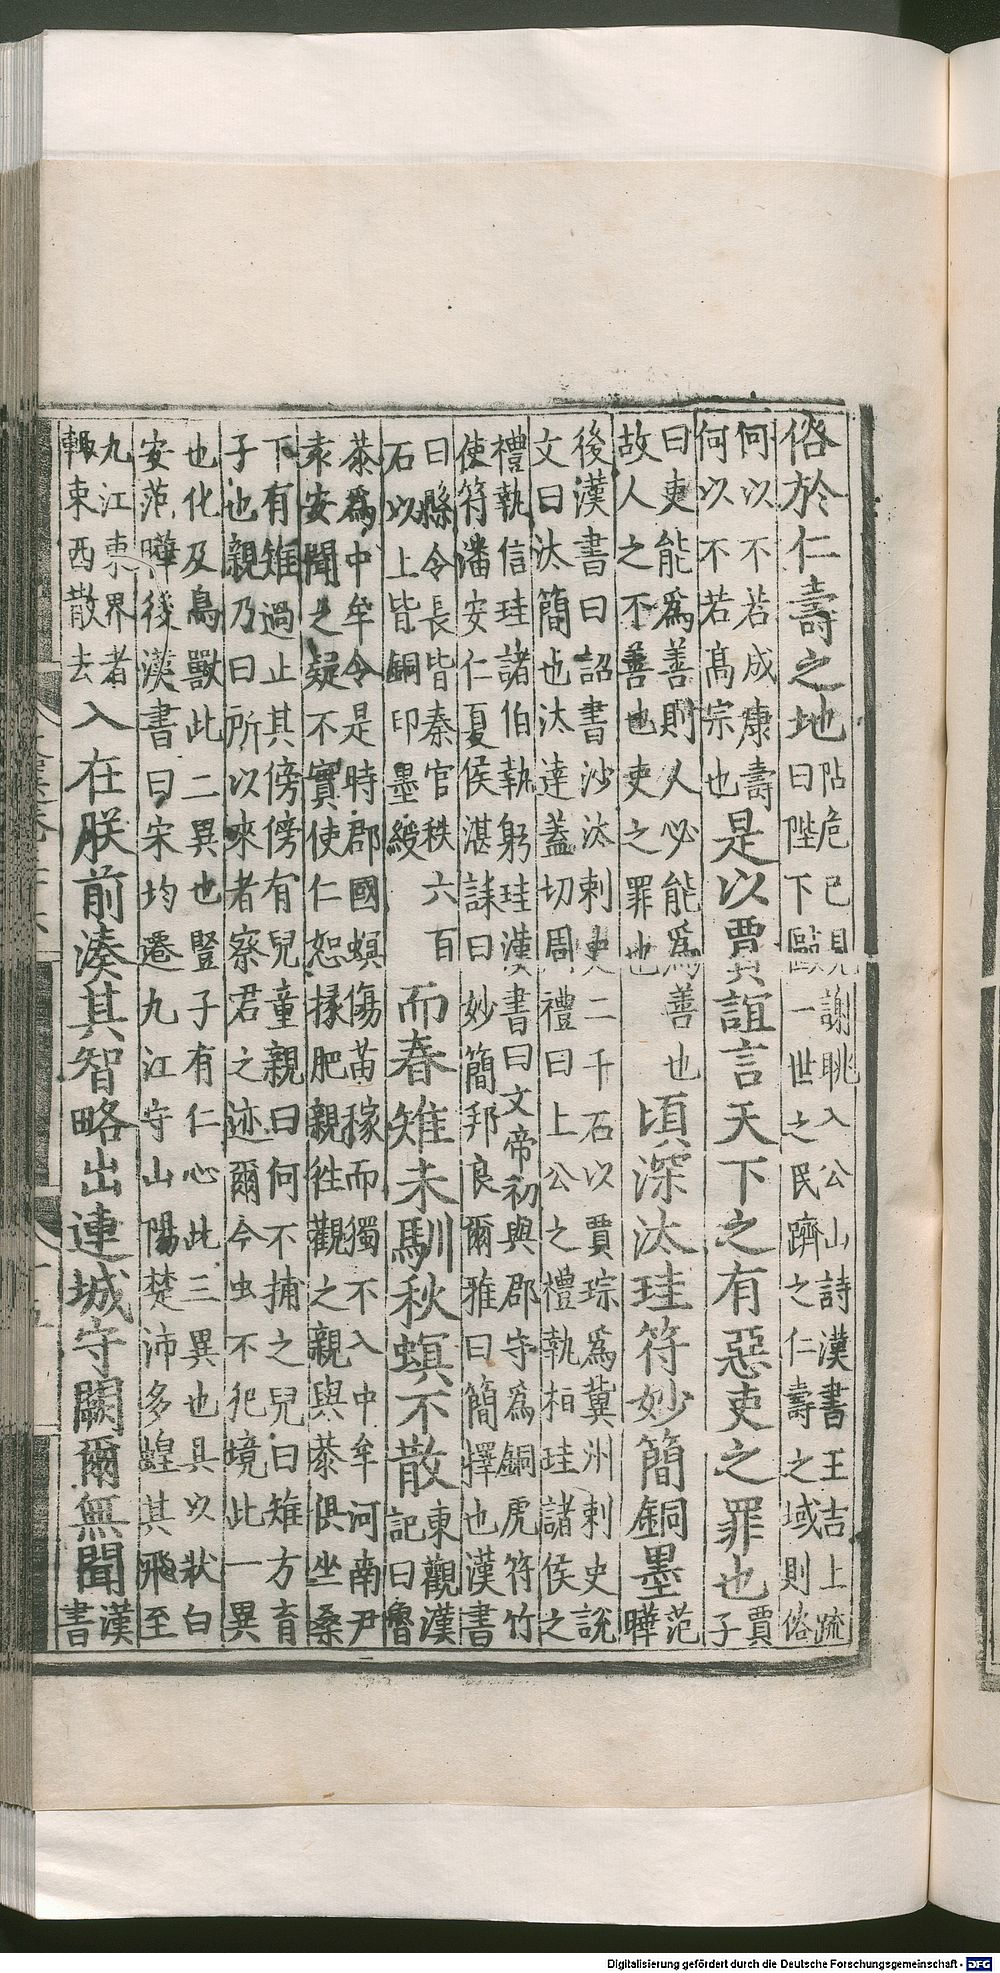 俗於仁壽之地阽危已見謝朓入公山詩漢書王吉上疏曰陛下歐一世之民躋之仁壽之域則俗
何以不若成康壽何以不若高宗也是以賈誼言天下之有惡吏之罪也賈子
曰吏能爲善則人必能爲善也故人之不善也吏之罪也頃深汰珪符妙簡銅墨范曄
後漢書曰詔書沙汰刺史二千石以賈琮爲冀州刺史說文曰汰簡也汰達蓋切周禮曰上公之禮執桓珪諸侯之
禮執信珪諸伯執躬珪漢書曰文帝初與郡守爲銅虎符竹使符潘安仁夏侯湛誄曰妙簡邦良爾雅曰簡擇也漢書
曰縣令長皆秦官秩六百石以上皆銅印墨綬而春雉未馴秋螟不散東觀漢記曰魯
恭爲中牟令是時郡國螟傷苗稼而獨不入中牟河南尹袁安聞之疑不實使仁恕掾肥親徃觀之親與恭俱坐桑
下有雉過止其傍傍有兒童親曰何不捕之兒曰雉方育子也親乃曰所以來者察君之迹爾今虫不犯境此一異
也化及鳥獸此二異也豎子有仁心此三異也具以狀白安范曄後漢書曰宋均遷九江守山陽楚沛多蝗其飛至
九江東界者輒東西散去入在朕前湊其智略出連城守闕爾無聞漢書
Digitalisierung gefördert durch die Deutsche Forschungsgemeinschaft - DFG